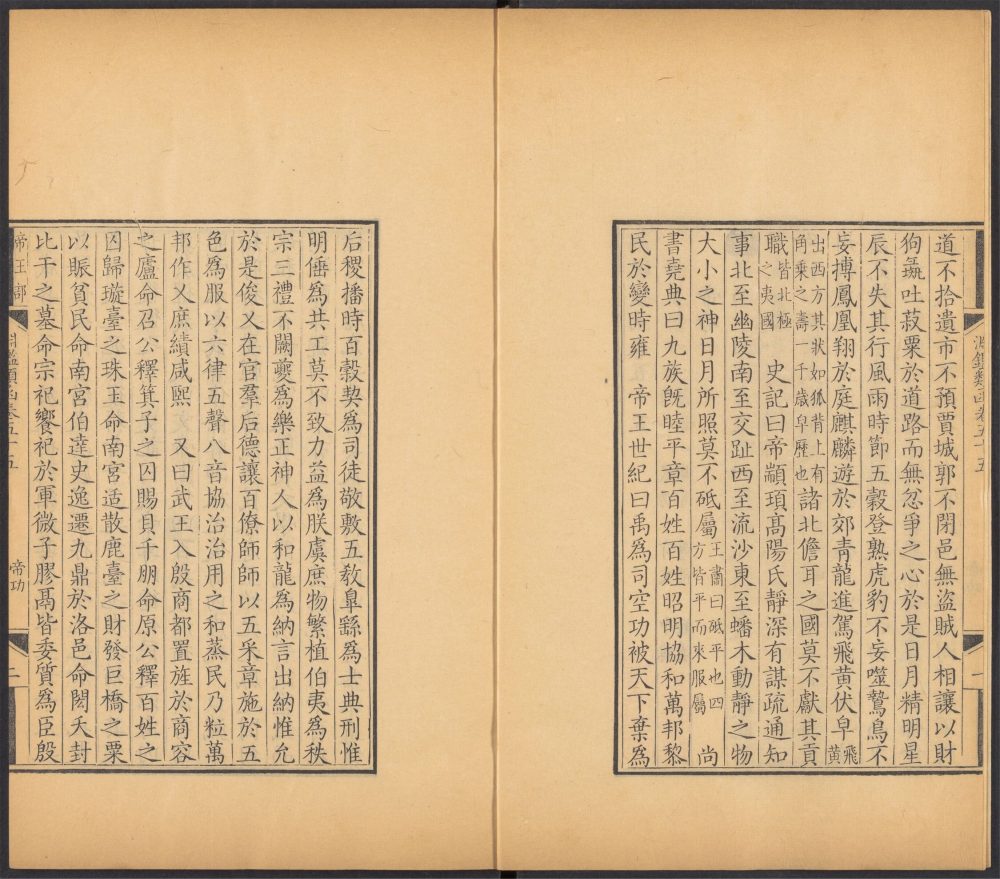 淵鑑類函卷五十五
一
道不拾遺市不預賈城郭不閉邑無盜賊人相讓以財
狗彘吐菽粟於道路而無忿爭之心於是日月精明星
辰不失其行風雨時節五穀登熟虎豹不妄噬鷙鳥不
妄搏鳳凰翔於庭麒麟遊於郊青龍進駕飛黃伏皁飛黃
出西方其狀如狐背上有角乘之壽一千歲皁歷也諸北儋耳之國莫不獻其貢
職皆北極之夷國 史記曰帝顓頊髙陽氏靜深有謀疏通知
事北至幽陵南至交趾西至流沙東至蟠木動靜之物
大小之神日月所照莫不砥屬王肅曰砥平也四方皆平而來服屬 尚
書堯典曰九族旣睦平章百姓百姓昭明協和萬邦黎
民於變時雍 帝王世紀曰禹爲司空功被天下棄爲
后稷播時百穀契爲司徒敬敷五敎臯繇爲士典刑惟
明倕爲共工莫不致力益爲朕虞庶物繁植伯夷爲秩
宗三禮不闕夔爲樂正神人以和龍爲納言出納惟允
於是俊乂在官羣后德讓百僚師師以五采章施於五
色爲服以六律五聲八音協治治用之和蒸民乃粒萬
邦作乂庶績咸熙 又曰武王入殷商都置旌於商容
之廬命召公釋箕子之囚賜貝千朋命原公釋百姓之
囚歸璇臺之珠玉命南宮适散鹿臺之財發巨橋之粟
以賑貧民命南宮伯達史逸遷九鼎於洛邑命閎夭封
比干之墓命宗祀饗祀於軍微子膠鬲皆委質爲臣殷
帝王部
淵鑑類函卷五十五
帝功
二